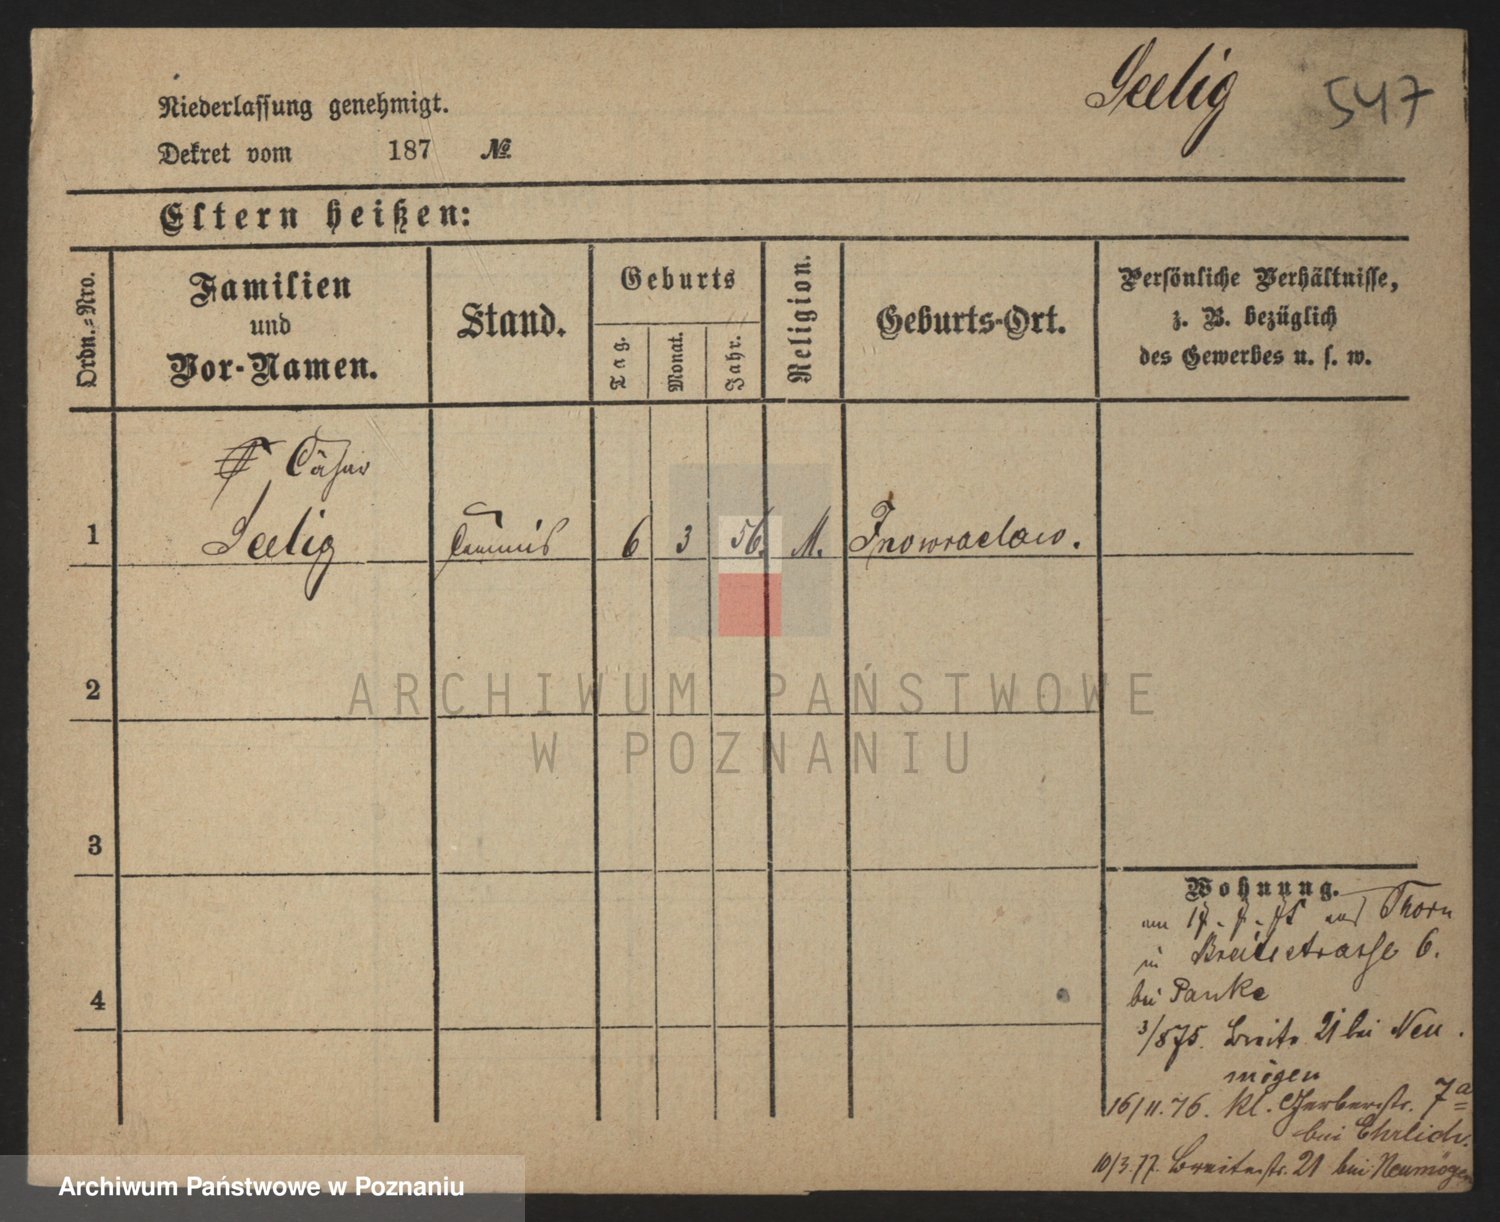 Seelig
547
Niederlassung genehmigt.
Dekret vom 187 №
Eltern heißen:
Ordn.-Nro.
Familien
und
Vor-Namen.
Stand.
Geburts
Tag.
Monat.
Jahr.
Religion.
Geburts-Ort.
Persönliche Verhältnisse,
z. B. bezüglich
des Gewerbes u. s. w.
Cäsar
1 Seelig Commis 6 3 56. M. Inowraclaw.
2
3
4
Wohnung.
am 17. 7. 75 aus Thorn
in Breitestrasse 6.
bei Panke
3/8 75. Breite 21 bei Neu
mögen
16/11. 76. Kl. Gerberstr. 7a
bei Ehrlich.
10/3. 77. Breitestr. 21 bei Neumögen
ARCHIWUM PAŃSTWOWE
W POZNANIU
Archiwum Państwowe w Poznaniu